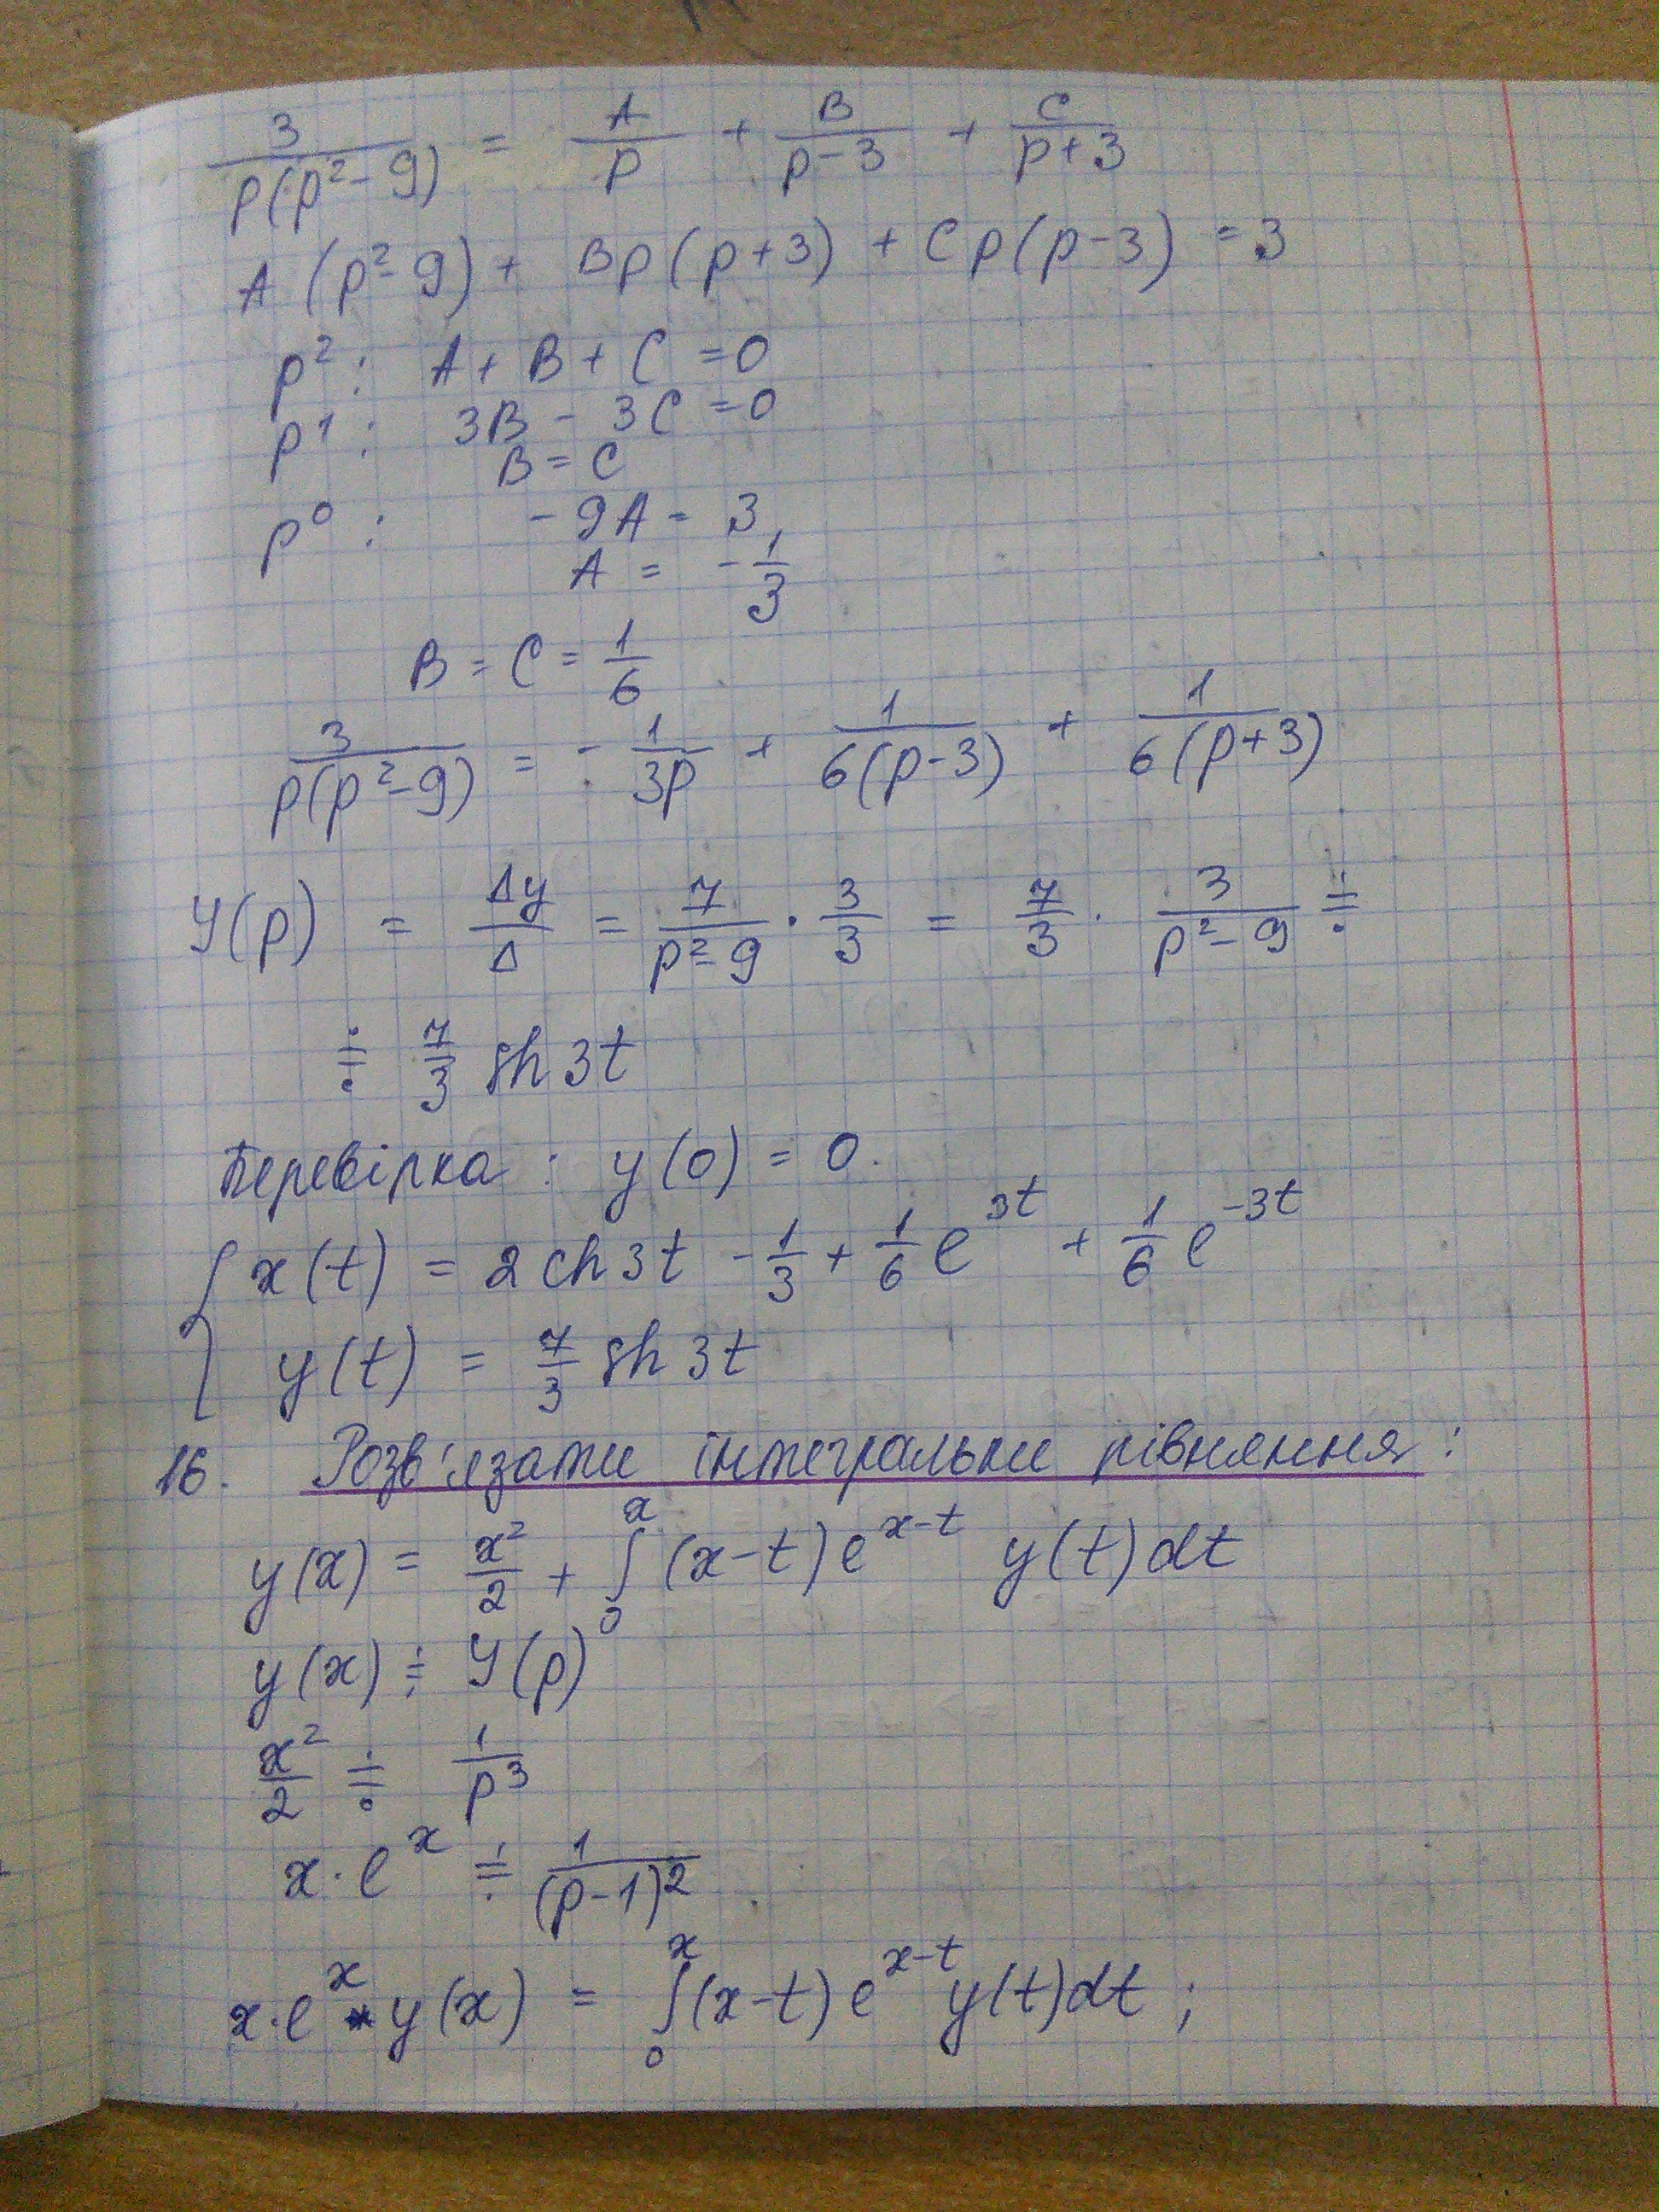 3/(p(p²-9)) = A/p + B/(p-3) + C/(p+3)
A(p²-9) + Bp(p+3) + Cp(p-3) = 3
p²: A + B + C = 0
p¹: 3B - 3C = 0
B = C
p⁰: -9A = 3
A = -1/3
B = C = 1/6
3/(p(p²-9)) = -1/(3p) + 1/(6(p-3)) + 1/(6(p+3))
Y(p) = Δy/Δ = 7/(p²-9) · 3/3 = 7/3 · 3/(p²-9) ≑
≑ 7/3 sh 3t
Перевірка: y(0) = 0.
{ x(t) = 2 ch 3t - 1/3 + 1/6 e^(3t) + 1/6 e^(-3t)
y(t) = 7/3 sh 3t
16. Розв'язати інтегральне рівняння:
y(x) = x²/2 + ∫₀ˣ (x-t) e^(x-t) y(t)dt
y(x) ≑ Y(p)
x²/2 ≑ 1/p³
x·eˣ ≑ 1/(p-1)²
x·eˣ * y(x) = ∫₀ˣ (x-t) e^(x-t) y(t)dt;